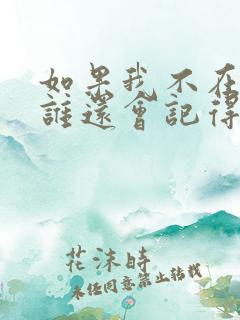 如果我不在
誰還會記得
花沫時
未经同意禁止转载